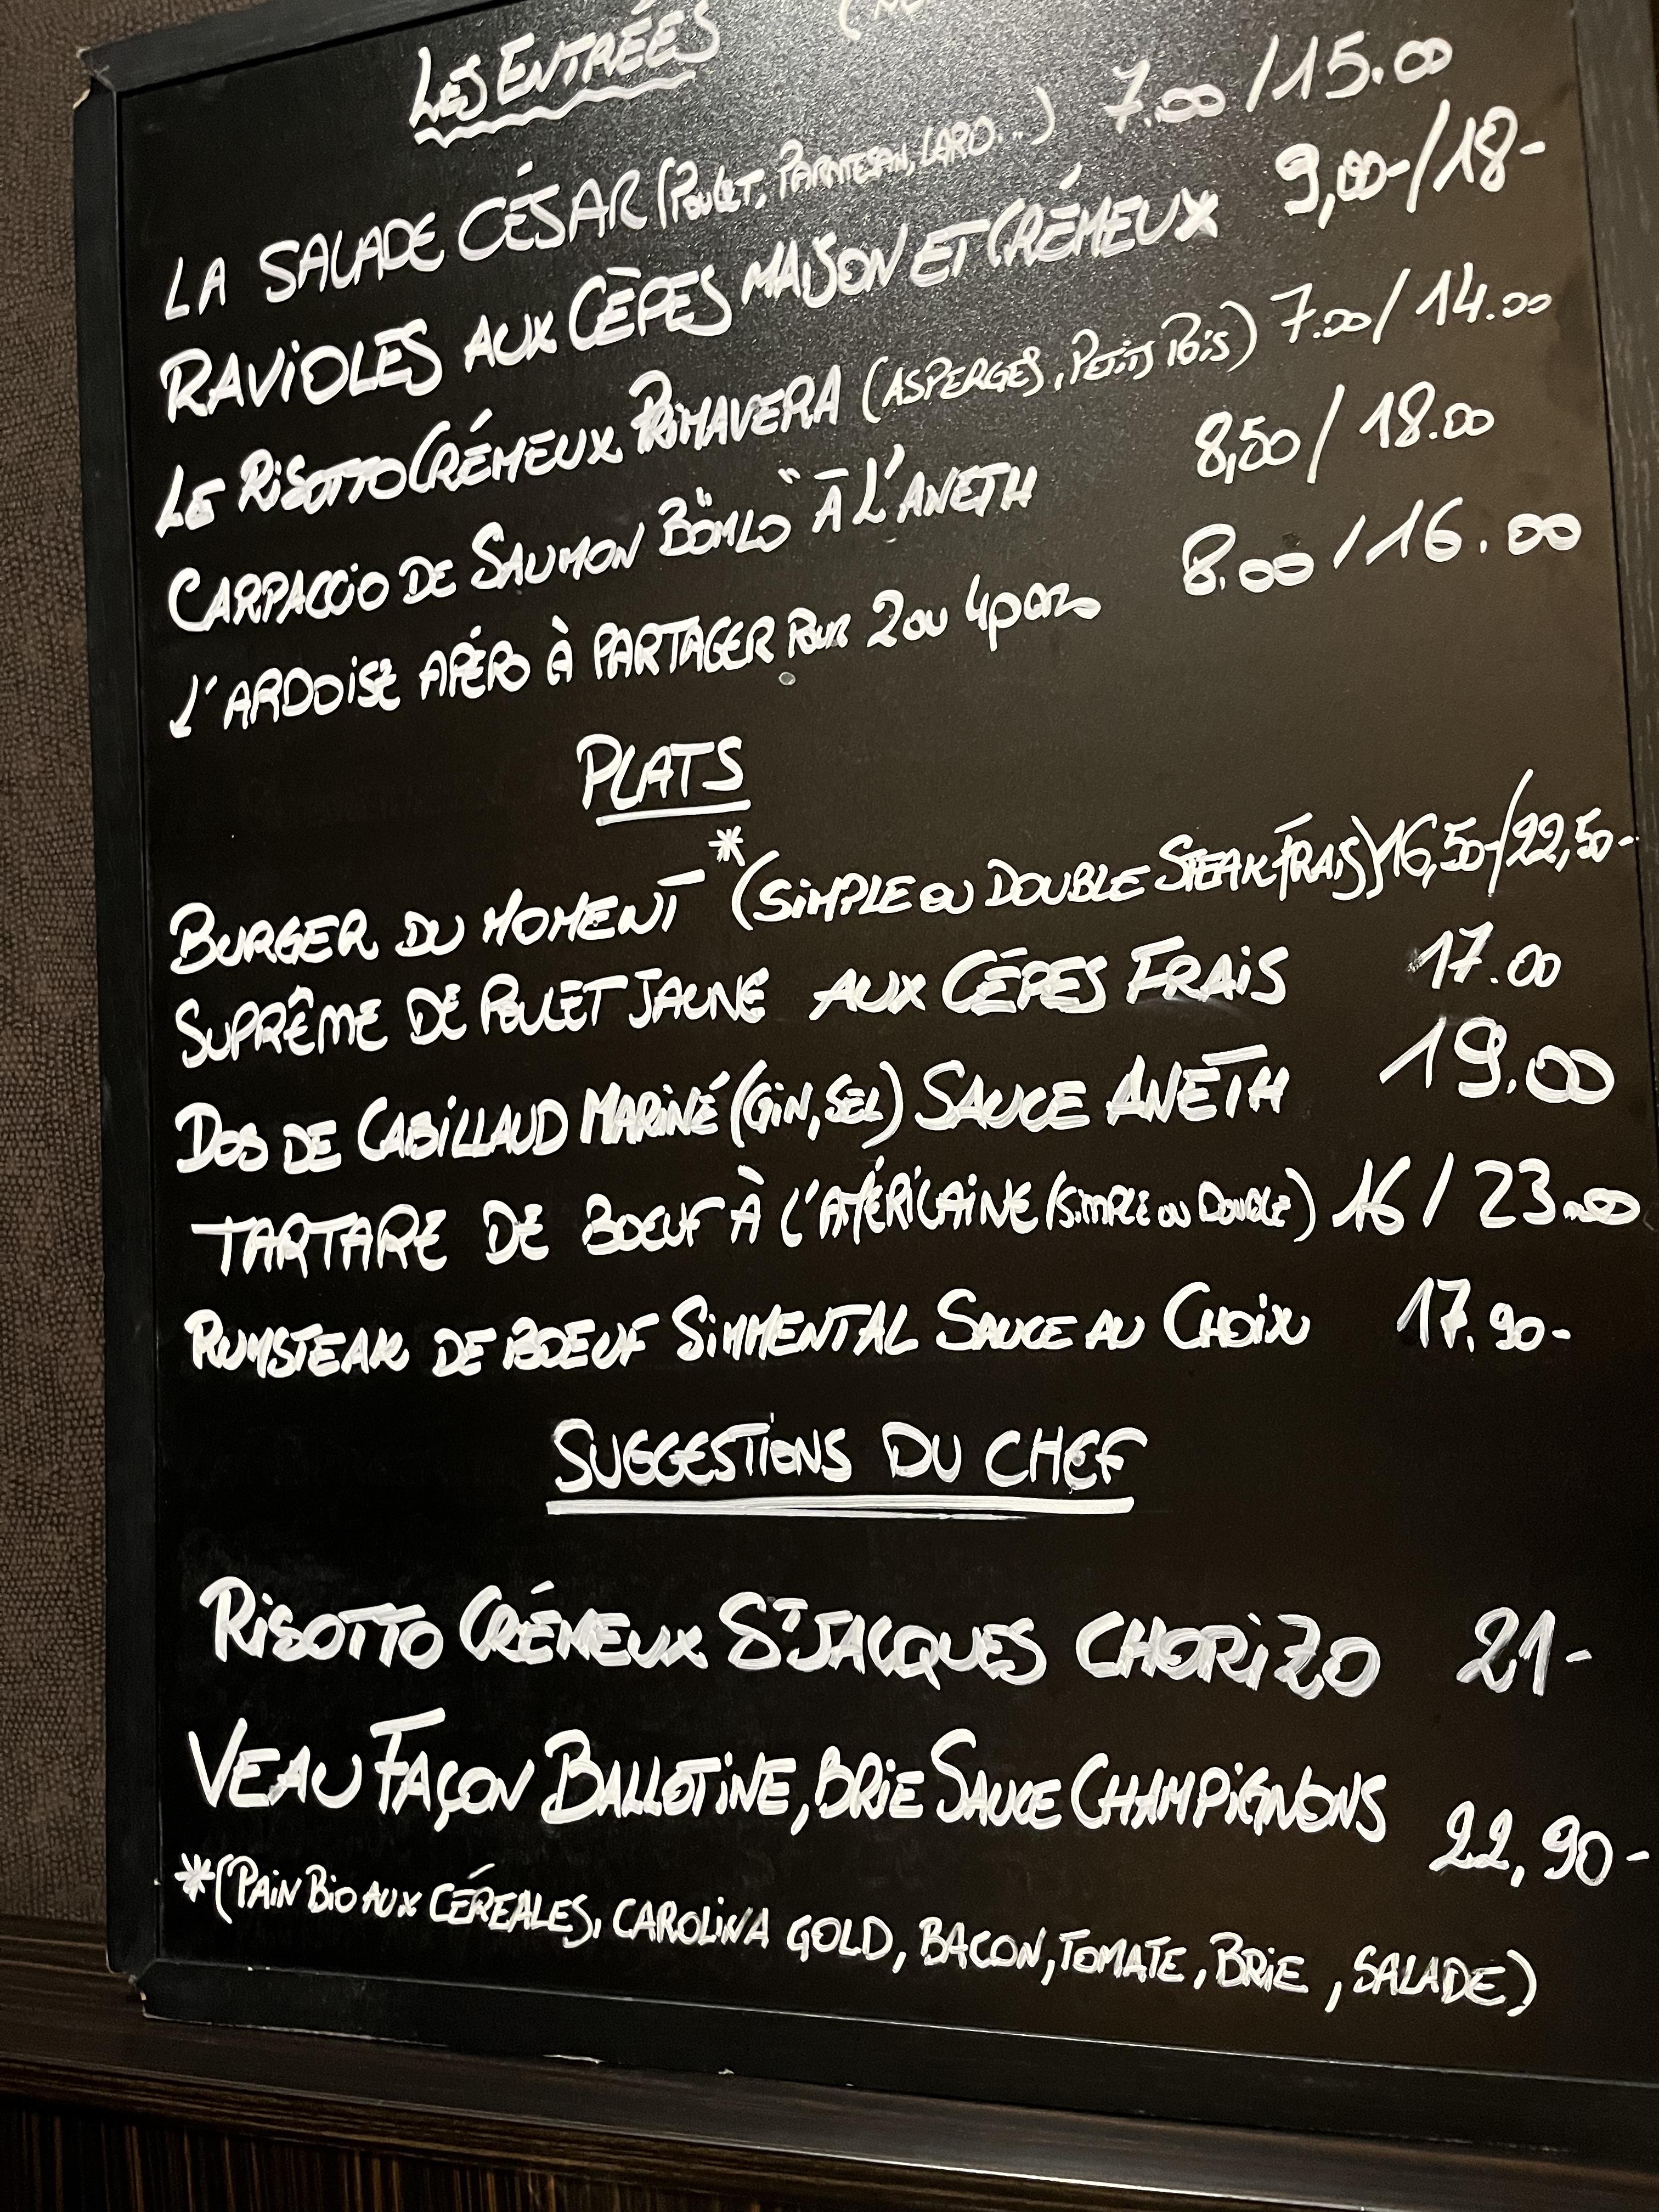 LES ENTRÉES
LA SALADE CÉSAR (POULET, PARMESAN, LARD...) 7.00/15.00
RAVIOLES AUX CÈPES MAISON ET CRÉMEUX 9,00-/18-
LE RISOTTO CRÉMEUX PRIMAVERA (ASPERGES, PETITS POIS) 7.00/14.00
CARPACCIO DE SAUMON "BÖMLO" À L'ANETH 8,50/18.00
L'ARDOISE APÉRO À PARTAGER POUR 2 OU 4 pers 8.00/16.00
PLATS
BURGER DU MOMENT * (SIMPLE OU DOUBLE STEAK FRAIS) 16,50-/22,50-
SUPRÊME DE POULET JAUNE AUX CÉPES FRAIS 17.00
DOS DE CABILLAUD MARINÉ (GIN, SEL) SAUCE ANETH 19.00
TARTARE DE BOEUF À L'AMÉRICAINE (SIMPLE OU DOUBLE) 16/23.00
RUMSTEAK DE BOEUF SIMMENTAL SAUCE AU CHOIX 17.90-
SUGGESTIONS DU CHEF
RISOTTO CRÉMEUX ST JACQUES CHORIZO 21-
VEAU FAÇON BALLOTINE, BRIE SAUCE CHAMPIGNONS 22,90-
*(PAIN BIO AUX CÉREALES, CAROLINA GOLD, BACON, TOMATE, BRIE, SALADE)